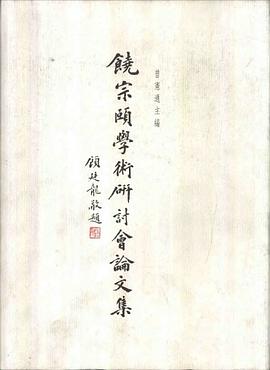 曾憲通主編
饒宗頤學術研討會論文集
顧廷龍敬題